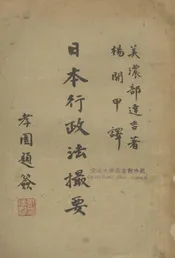 美濃部達吉著
楊開甲譯
日本行政法撮要
孝園題簽